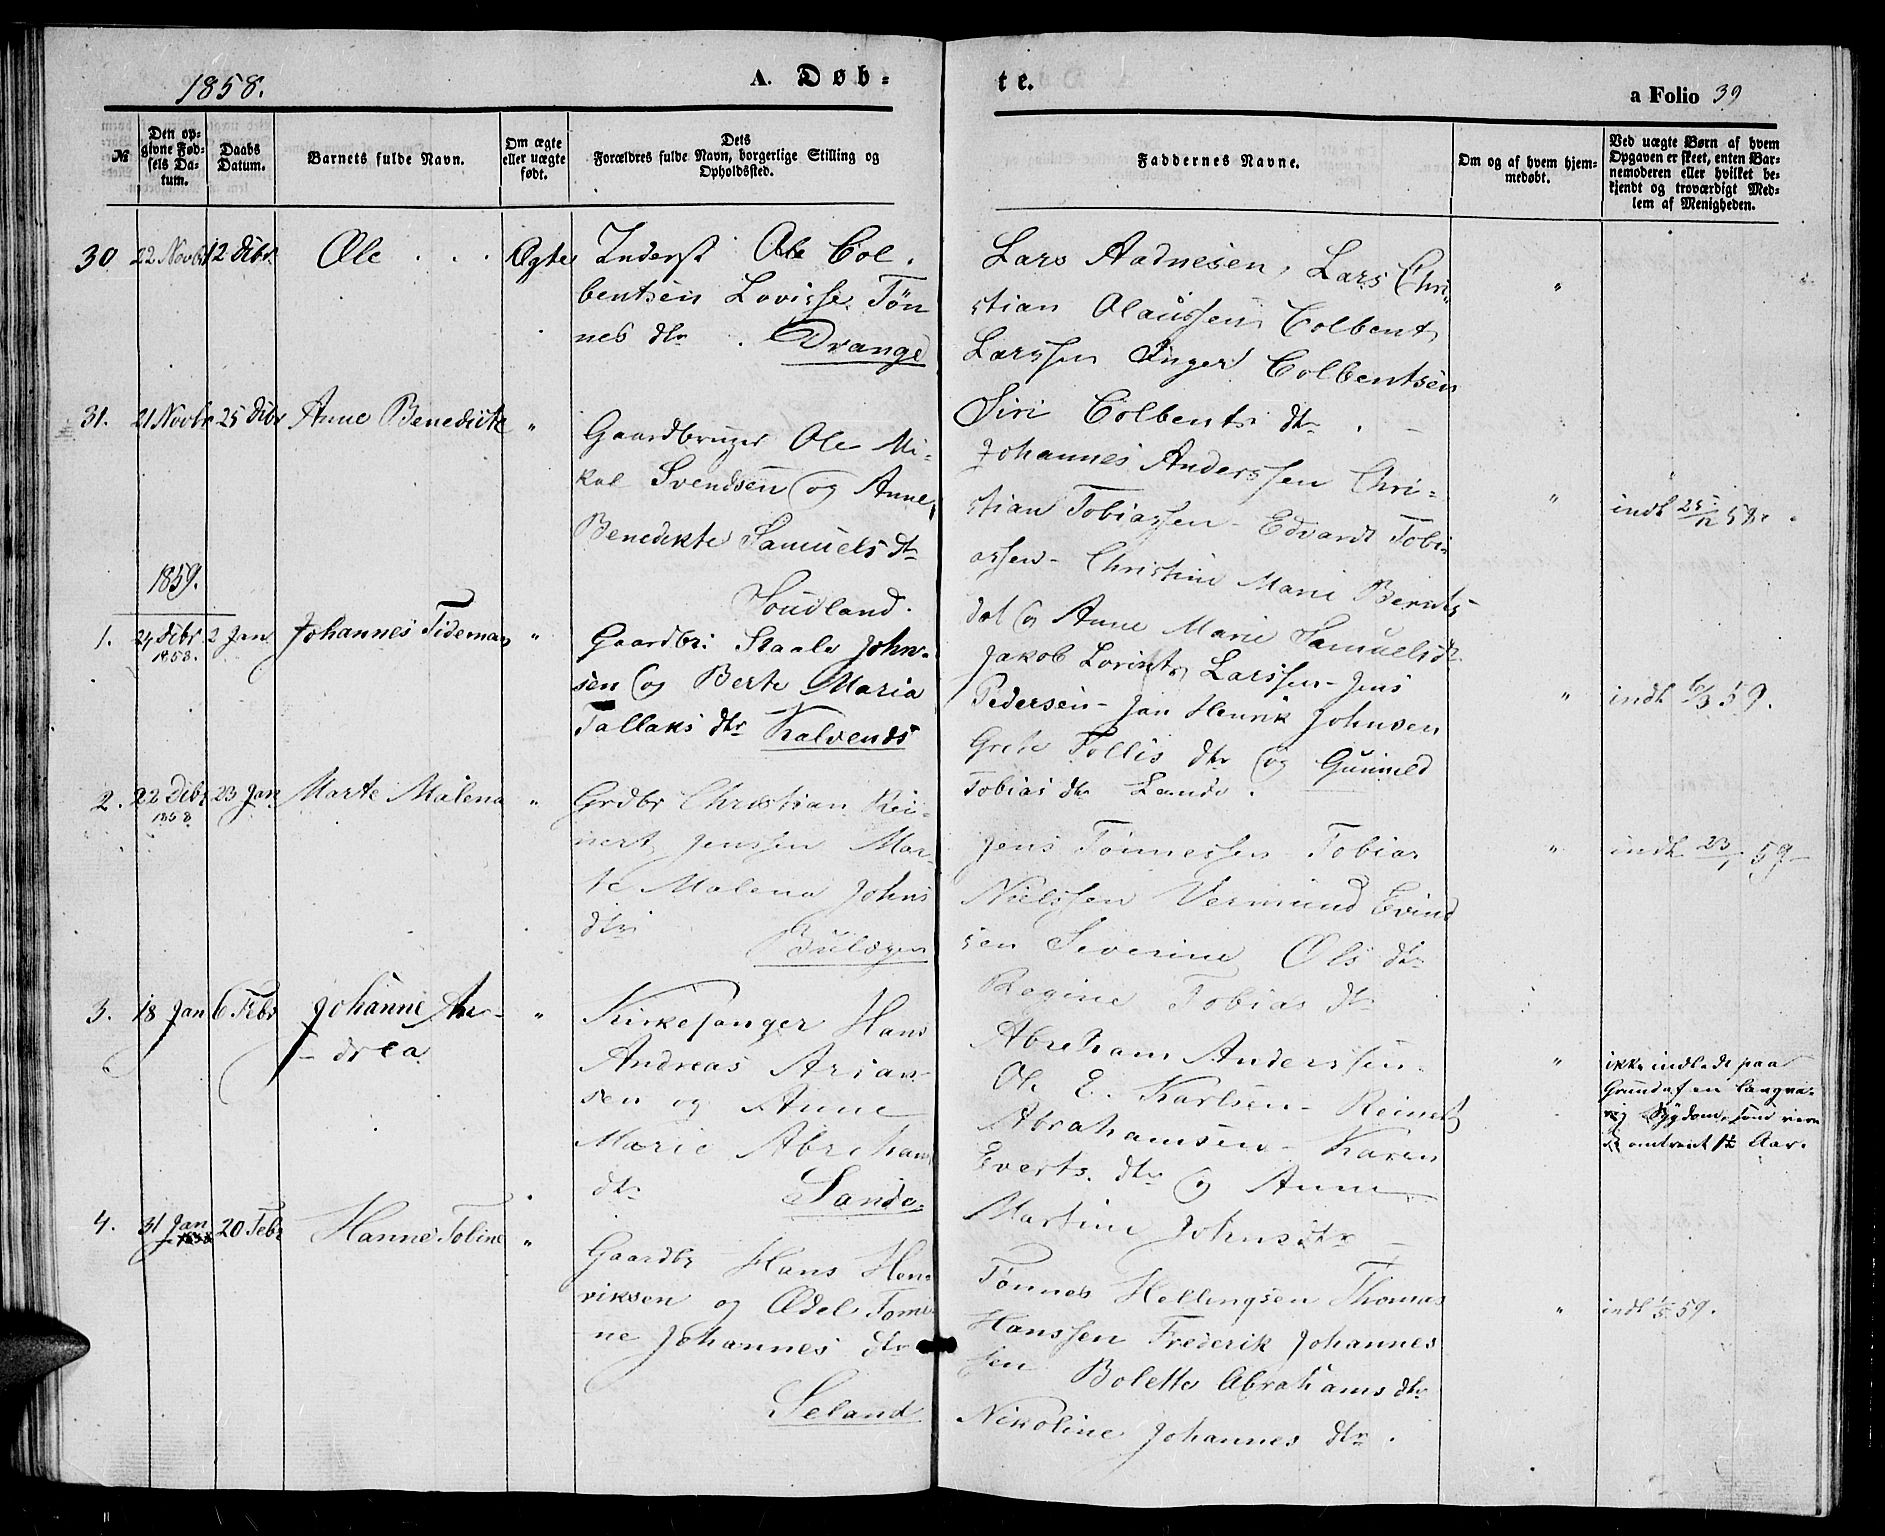 1858.
A. Døb-
te.
a Folio 39
№
Den op-
givne Fød-
sels Da-
tum.
Daabs
Datum.
Barnets fulde Navn.
Om ægte
eller uægte
født.
Dets
Forældres fulde Navn, borgerlige Stilling og
Opholdssted.
Faddernes Navne.
Om og af hvem hjem-
medøbt.
Ved uægte Børn af hvem
Opgaven er skeet, enten Bar-
nemoderen eller hvilket be-
kjendt og troværdigt Med-
lem af Menigheden.
30 22 Novbr 12 Dibr. Ole Ægte
Inderst Ole Col-
bentsen Lovisse Tøn
nes dtr. Drange
Lars Aadnesen, Lars Chri-
stian Olaussen Colbent
Larssen Inger Colbentsen
Siri Colbents dtr. "
31. 21 Novbr 25 Dibr Anne Benedicte "
Gaardbruger Ole Mi-
kal Svendsen og Anne
Benedikte Samuels dtr
Houdland.
Johannes Anderssen Chri-
stian Tobiassen - Edvardt Tobi
assen - Christine Marie Bernts
dat og Anne Marie Samuelsdtr
" indl 25/12 58.
1859.
1. 24 Dibr 1858. 2 Jan Johannes Tideman "
Gaardbr: Staale John-
sen og Berte Maria
Tallaks dtr Kalvends
Jakob Lorints Larssen - Jens
Pedersen - Jan Henrik Johnsen
Grete Tollis dtr og Gunnild
Tobias dtr Lande.
" indl 6/3 59.
2. 22 Dibr 1858 23 Jan Marte Malena "
Grdbr Christian Rei-
nert Jenssen Mar-
te Malena Johns
dtr
Jens Tønnessen - Tobias
Nielssen Vermund Evind
sen Severine Ols dtr
Regine Tobias dtr
" indl 23/ 59
3. 18 Jan 6 Febr Johanne An-
drea "
Kirkesanger Hans
Andreas Arian-
sen og Anne
Marie Abraham
dtr Sande
Abraham Anderssen.
Ole E. Karlsen - Reinert
Abrahamsen - Karen
Everts. dtr og Anne
Martine Johns dtr
" ikke indledt paa
Grund af en langva-
rig Sygdom, som vare
de omtrent 1½ Aar.
4. 31 Jan 20 Febr Hanne Toline "
Gaardbr Hans Hen-
riksen og Ædel Tomi
ne Johannes dtr
Seland
Tønnes Hellingsen Thomas
Hanssen Frederik Johannes
sen Bolette Abrahams dtr
Nikoline Johannes dtr.
" indl 1/5 59.